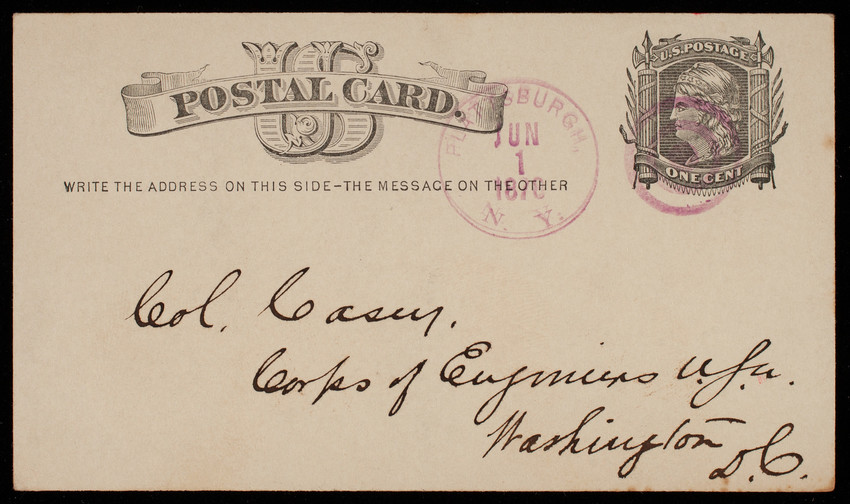 US
POSTAL CARD.
U.S. POSTAGE
ONE CENT
WRITE THE ADDRESS ON THIS SIDE–THE MESSAGE ON THE OTHER
PLATTSBURGH,
JUN
1
N. Y.
Col. Casey.
Corps of Engineers U.S.A.
Washington
D.C.